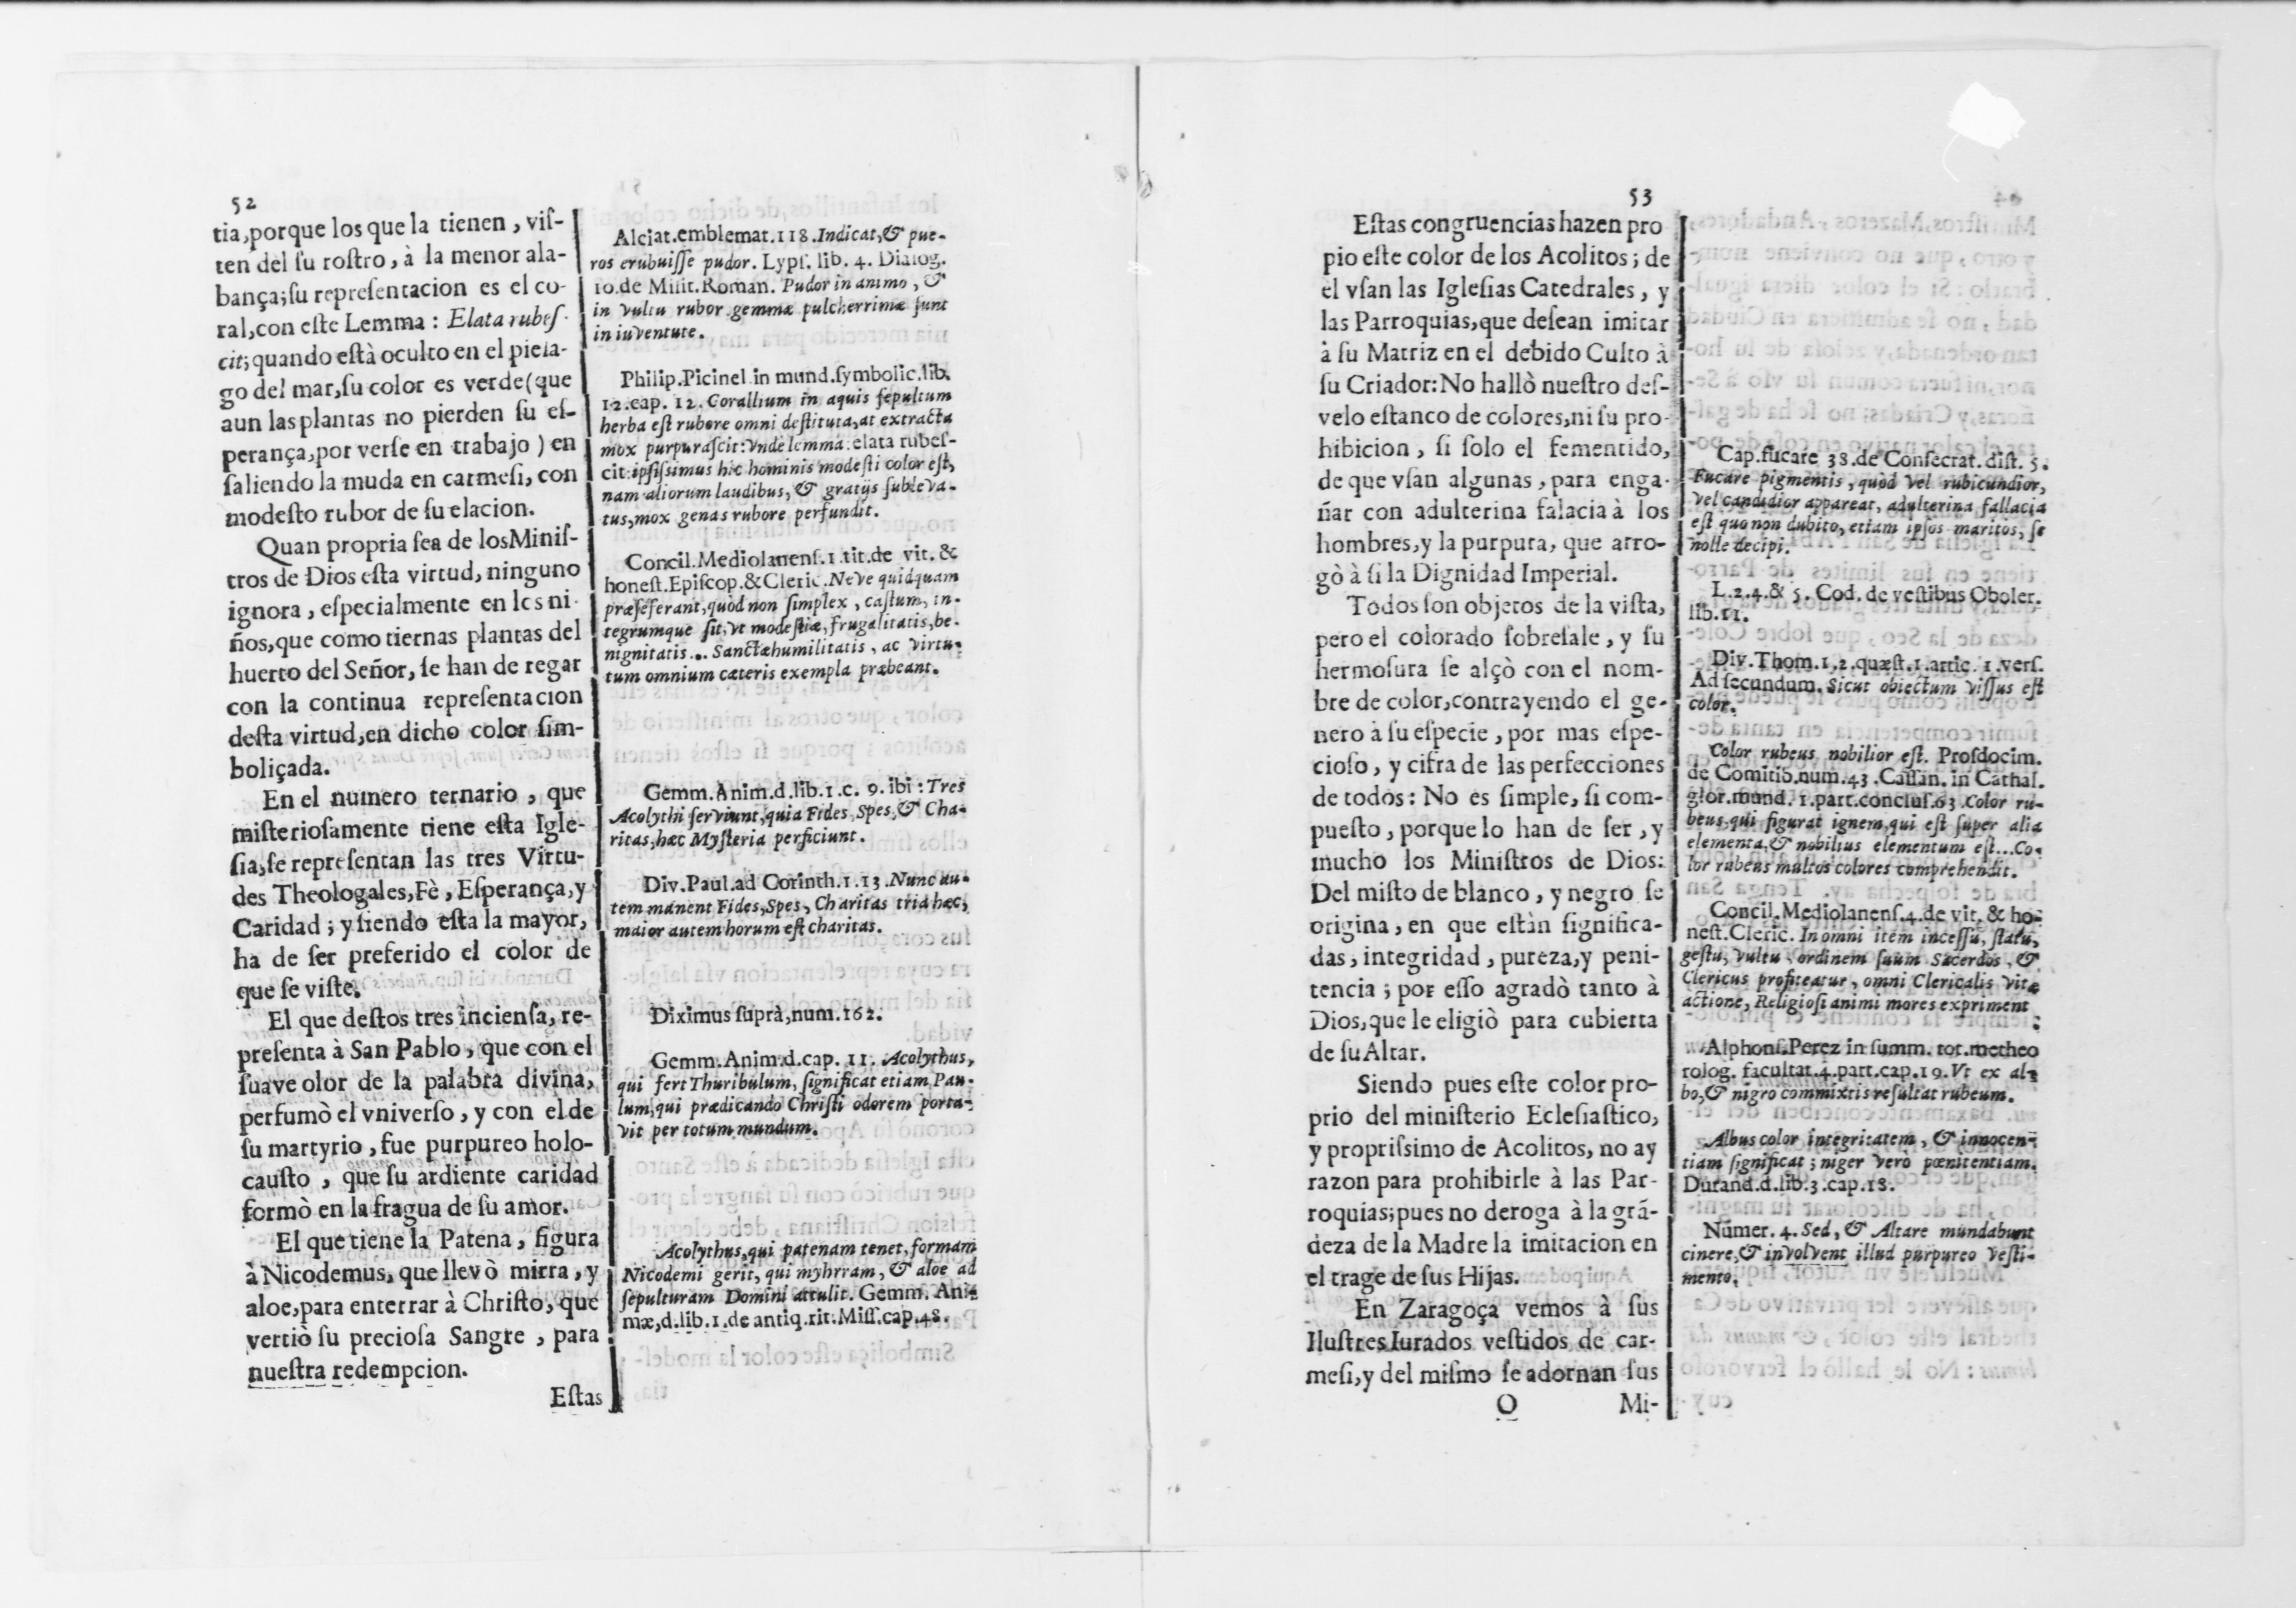 52
tia,porque los que la tienen, viſ-
ten del ſu roſtro, à la menor ala-
bança; ſu repreſentacion es el co-
ral, con eſte Lemma: Elata rubeſ-
cit; quando eſtà oculto en el piela-
go del mar, ſu color es verde (que
aun las plantas no pierden ſu eſ-
perança, por verſe en trabajo) en
ſaliendo la muda en carmeſi, con
modeſto rubor de ſu elacion.
Quan propria ſea de los Miniſ-
tros de Dios eſta virtud, ninguno
ignora, eſpecialmente en los ni-
ños, que como tiernas plantas del
huerto del Señor, ſe han de regar
con la continua repreſentacion
deſta virtud, en dicho color ſim-
boliçada.
En el numero ternario, que
miſterioſamente tiene eſta Igle-
ſia, ſe repreſentan las tres Virtu-
des Theologales, Fè, Eſperança, y
Caridad; y ſiendo eſta la mayor,
ha de ſer preferido el color de
que ſe viſte.
El que deſtos tres incienſa, re-
preſenta à San Pablo, que con el
ſuave olor de la palabra divina,
perfumò el vniverſo, y con el de
ſu martyrio, fue purpureo holo-
cauſto, que ſu ardiente caridad
formò en la fragua de ſu amor.
El que tiene la Patena, figura
à Nicodemus, que llevò mirra, y
aloe, para enterrar à Chriſto, que
vertiò ſu precioſa Sangre, para
nueſtra redempcion.
Eſtas
Alciat.emblemat.118. Indicat, & pue-
ros erubuiſſe pudor. Lypſ. lib. 4. Dialog.
10. de Milit. Roman. Pudor in animo, &
in vultu rubor gemmæ pulcherrimæ ſunt
in iuventute.
Philip.Picinel in mund.ſymbolic.lib.
12.cap. 12. Corallium in aquis ſepultum
herba eſt rubore omni deſtituta, at extracta
mox purpuraſcit: Vnde lemma: elata rubeſ-
cit ipſiſsimus hic hominis modeſti color eſt,
nam aliorum laudibus, & gratijs ſubleva-
tus, mox genas rubore perfundit.
Concil.Mediolanenſ.1.tit.de vit. &
honeſt.Epiſcop.&Cleric. Neve quidquam
præſeferant, quòd non ſimplex, caſtum, in-
tegrumque ſit, vt modeſtiæ, frugalitatis, be-
nignitatis... Sanctæ humilitatis, ac virtu-
tum omnium cæteris exempla præbeant.
Gemm.Anim.d.lib.1.c. 9. ibi: Tres
Acolythi ſerviunt, quia Fides, Spes, & Cha-
ritas, hæc Myſteria perficiunt.
Div.Paul.ad Corinth.1.13. Nunc au-
tem manent Fides, Spes, Charitas tria hæc,
maior autem horum eſt charitas.
Diximus ſuprà, num.162.
Gemm.Anim.d.cap. 11. Acolythus,
qui fert Thuribulum, ſignificat etiam Pau-
lum, qui prædicando Chriſti odorem porta-
vit per totum mundum.
Acolythus, qui patenam tenet, formam
Nicodemi gerit, qui myhrram, & aloe ad
ſepulturam Domini attulit. Gemm. Ani-
mæ, d.lib.1.de antiq.rit.Miſſ.cap.48.
53
Eſtas congruencias hazen pro
pio eſte color de los Acolitos; de
el vſan las Igleſias Catedrales, y
las Parroquias, que deſean imitar
à ſu Matriz en el debido Culto à
ſu Criador: No hallò nueſtro deſ-
velo eſtanco de colores, ni ſu pro-
hibicion, ſi ſolo el fementido,
de que vſan algunas, para enga-
ñar con adulterina falacia à los
hombres, y la purpura, que arro-
gò à ſi la Dignidad Imperial.
Todos ſon objetos de la viſta,
pero el colorado ſobreſale, y ſu
hermoſura ſe alçò con el nom-
bre de color, contrayendo el ge-
nero à ſu eſpecie, por mas eſpe-
cioſo, y cifra de las perfecciones
de todos: No es ſimple, ſi com-
pueſto, porque lo han de ſer, y
mucho los Miniſtros de Dios:
Del miſto de blanco, y negro ſe
origina, en que eſtàn ſignifica-
das, integridad, pureza, y peni-
tencia; por eſſo agradò tanto à
Dios, que le eligiò para cubierta
de ſu Altar.
Siendo pues eſte color pro-
prio del miniſterio Ecleſiaſtico,
y propriſsimo de Acolitos, no ay
razon para prohibirle à las Par-
roquias; pues no deroga à la grã-
deza de la Madre la imitacion en
el trage de ſus Hijas.
En Zaragoça vemos à ſus
Iluſtres Iurados veſtidos de car-
meſi, y del miſmo ſe adornan ſus
O Mi-
Cap.fucare 38.de Conſecrat. diſt. 5.
Fucare pigmentis, quòd vel rubicundior,
vel candidior appareat, adulterina fallacia
eſt quo non dubito, etiam ipſos maritos, ſe
nolle decipi.
L.2.4.& 5. Cod. de veſtibus Oboler.
lib.11.
Div.Thom.1.2.quæſt.1.artic. 1.verſ.
Ad ſecundum. Sicut obiectum viſſus eſt
color.
Color rubeus nobilior eſt. Proſdocim.
de Comitio.num.43.Caſſan. in Cathal.
glor.mund. 1.part.concluſ.63. Color ru-
beus, qui figurat ignem, qui eſt ſuper alia
elementa, & nobilius elementum eſt...Co-
lor rubeus multos colores comprehendit.
Concil.Mediolanenſ.4.de vit. & ho-
neſt.Cleric. In omni item inceſſu, ſtatu,
geſtu, vultu, ordinem ſuum Sacerdos, &
Clericus profiteatur, omni Clericalis vitæ
actione, Religioſi animi mores expriment
Alphonſ.Perez in ſumm. tot.metheo
rolog. facultat.4.part.cap.19. Vt ex al-
bo, & nigro commixtis reſultat rubeum.
Albus color integritatem, & innocen-
tiam ſignificat; niger verò pœnitentiam.
Durand.d.lib.3.cap.18.
Númer. 4. Sed, & Altare mundabunt
cinere, & involvent illud purpureo veſti-
mento.